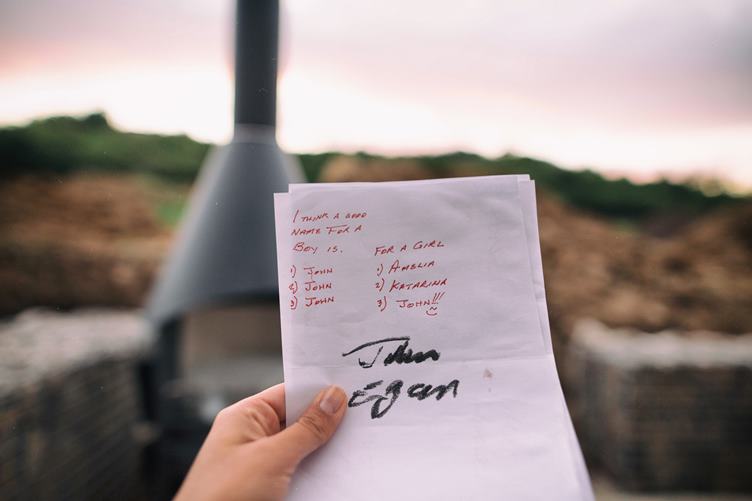 I THINK A GOOD
NAME FOR A
BOY IS.
1) JOHN
2) JOHN
3) JOHN
FOR A GIRL
1) AMELIA
2) KATARINA
3) JOHN!!!
John
Egan